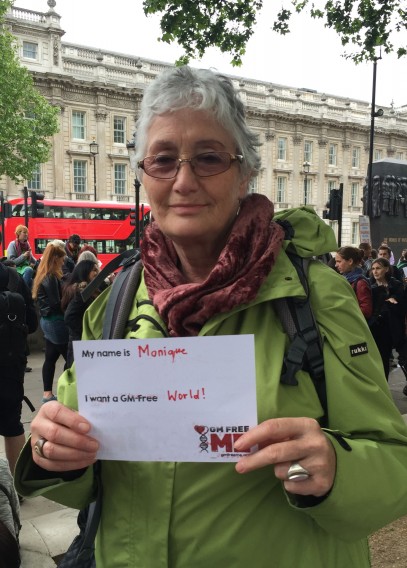 My name is Monique
rukka
I want a GM-Free World!
GM FREE
ME